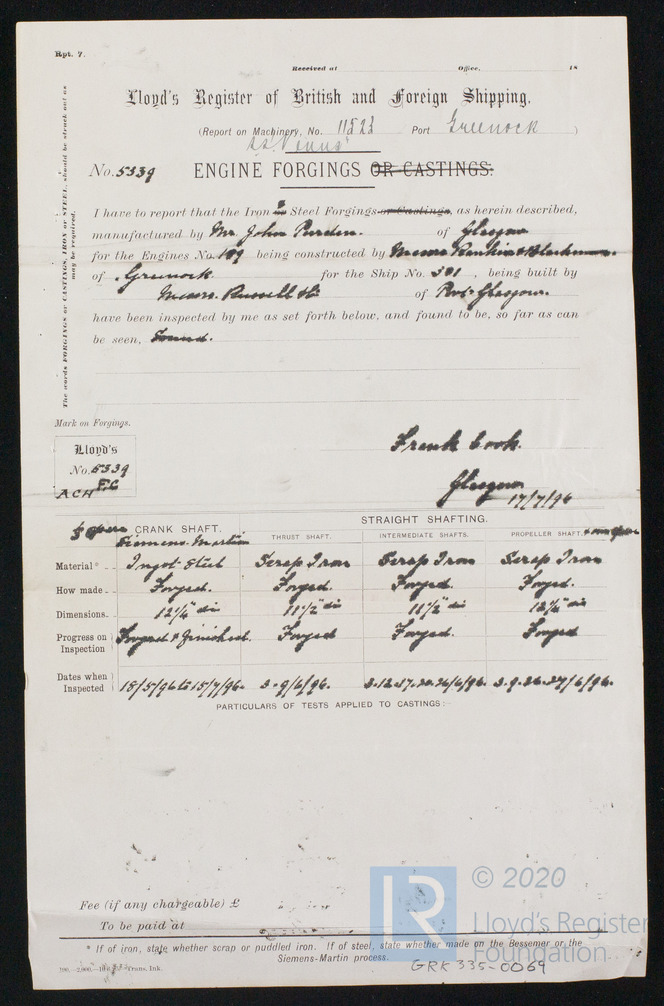 Rpt. 7.
Received at Office, 18
Lloyd's Register of British and Foreign Shipping.
(Report on Machinery, No. 11523 Port Greenock )
S.S. "Venus"
No. 5339 ENGINE FORGINGS OR CASTINGS.
The words FORGINGS or CASTINGS, IRON or STEEL, should be struck out as may be required.
I have to report that the Iron & Steel Forgings or Castings, as herein described,
manufactured by Mr. John Purden. of Glasgow
for the Engines No. 189 being constructed by Messrs Rankin & Blackmore.
of Greenock for the Ship No. 381 , being built by
Messrs. Russell & Co of Port-Glasgow.
have been inspected by me as set forth below, and found to be, so far as can
be seen, Sound.
Mark on Forgings.
Lloyd's
No. 5339
F.C
ACH
Frank Cook.
Glasgow
17/7/96
CRANK SHAFT. STRAIGHT SHAFTING.
THRUST SHAFT. INTERMEDIATE SHAFTS. PROPELLER SHAFT.
Siemens-Martin
Material* Ingot Steel Scrap Iron Scrap Iron Scrap Iron
How made Forged. Forged. Forged. Forged.
Dimensions 12¼" dia 11½" dia 11½" dia 12¼" dia
Progress on Inspection Forged & Finished. Forged Forged. Forged
Dates when Inspected 18/5/96 to 15/7/96. 3-9/6/96. 3.12.17.20.26/6/96. 3.9.26.27/6/96.
PARTICULARS OF TESTS APPLIED TO CASTINGS:—
Fee (if any chargeable) £
To be paid at
* If of iron, state whether scrap or puddled iron. If of steel, state whether made on the Bessemer or the
Siemens-Martin process.
Trans. Ink.
GRK 335-0069
LR
© 2020
Lloyd's Register
Foundation